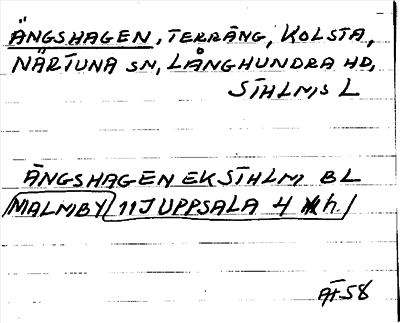 ÄNGSHAGEN, TERRÄNG, KOLSTA,
NÄRTUNA SN, LÅNGHUNDRA HD,
STHLMS L
ÄNGSHAGEN EK STHLM BL
MALMBY 11J UPPSALA 4 h
ÄT 58